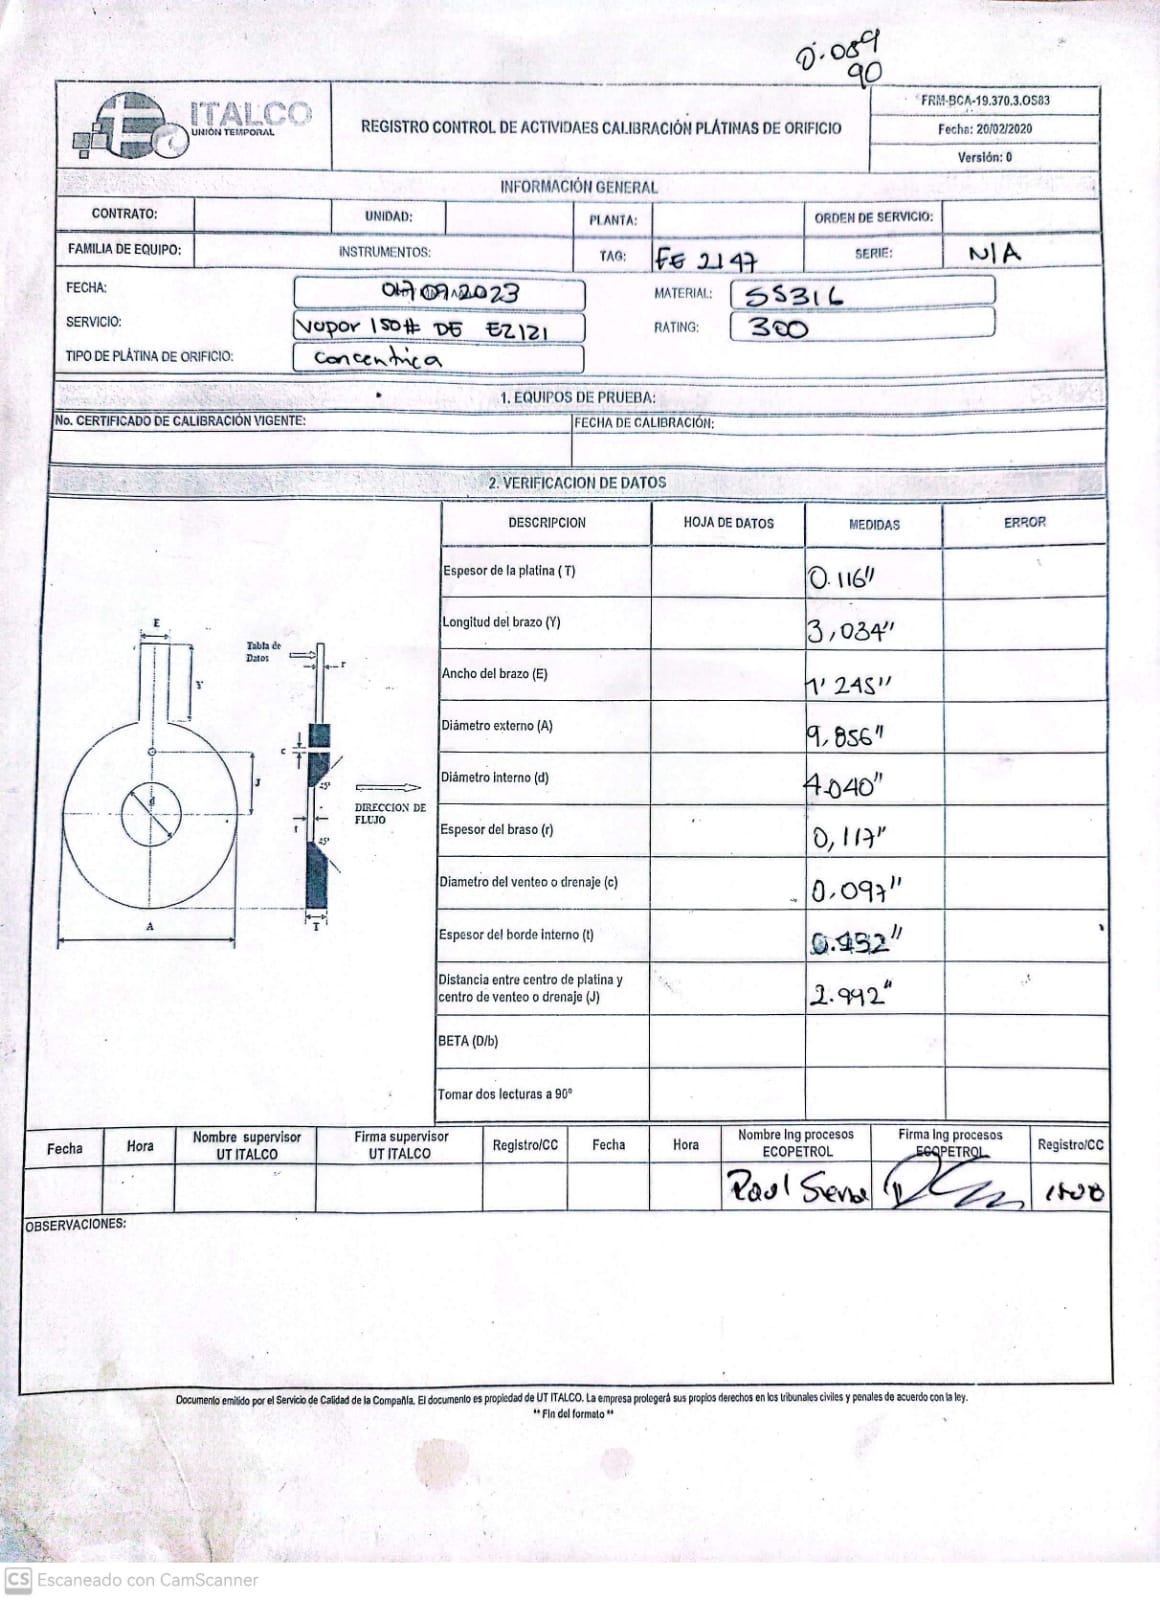 0.089
90
ITALCO
UNIÓN TEMPORAL
REGISTRO CONTROL DE ACTIVIDAES CALIBRACIÓN PLÁTINAS DE ORIFICIO
FRM-BCA-19.370.3.OS83
Fecha: 20/02/2020
Versión: 0
INFORMACIÓN GENERAL
CONTRATO: UNIDAD: PLANTA: ORDEN DE SERVICIO:
FAMILIA DE EQUIPO: INSTRUMENTOS: TAG: FE 2147 SERIE: N/A
FECHA: 09.2023 MATERIAL: SS316
SERVICIO: Vapor 150# DE E2121 RATING: 300
TIPO DE PLÁTINA DE ORIFICIO: concentrica
1. EQUIPOS DE PRUEBA:
No. CERTIFICADO DE CALIBRACIÓN VIGENTE: FECHA DE CALIBRACIÓN:
2. VERIFICACION DE DATOS
DESCRIPCION HOJA DE DATOS MEDIDAS ERROR
Espesor de la platina (T) 0.116"
Longitud del brazo (Y) 3,034"
Ancho del brazo (E) 1' 245"
Diámetro externo (A) 9,856"
Diámetro interno (d) 4.040"
Espesor del braso (r) 0,117"
Diametro del venteo o drenaje (c) 0.097"
Espesor del borde interno (t)
Distancia entre centro de platina y
centro de venteo o drenaje (J) 2.992"
BETA (D/b)
Tomar dos lecturas a 90°
E
Tabla de
Datos
r
Y
c
J
45°
d
DIRECCION DE
FLUJO
t
45°
A
T
Fecha Hora Nombre supervisor
UT ITALCO Firma supervisor
UT ITALCO Registro/CC Fecha Hora Nombre Ing procesos
ECOPETROL Firma Ing procesos
ECOPETROL Registro/CC
Raul Sierra
OBSERVACIONES:
Documento emitido por el Servicio de Calidad de la Compañía. El documento es propiedad de UT ITALCO. La empresa protegerá sus propios derechos en los tribunales civiles y penales de acuerdo con la ley.
** Fin del formato **
CS Escaneado con CamScanner